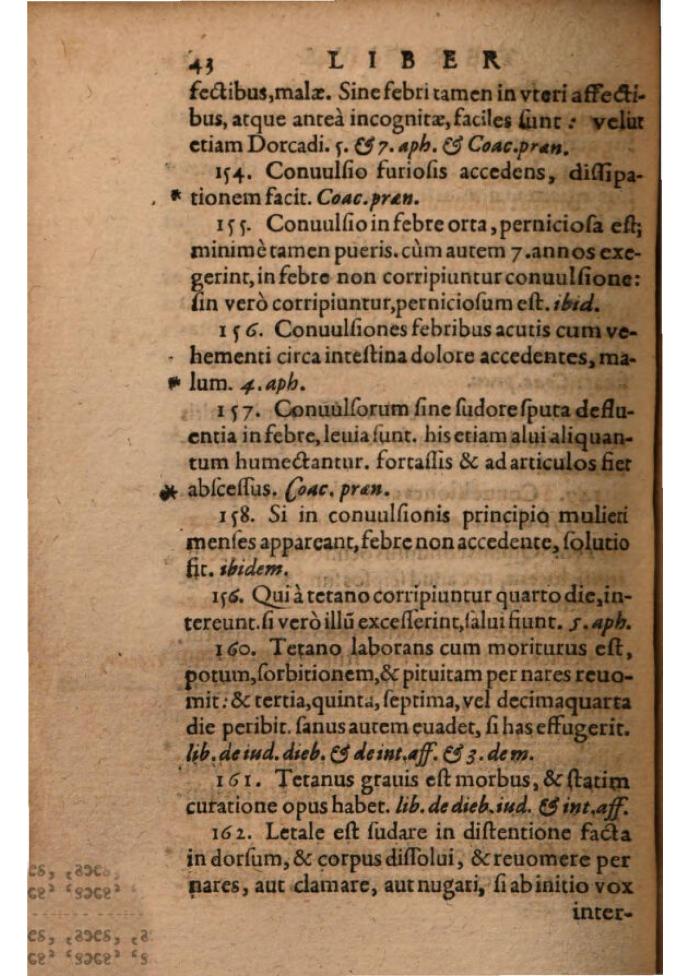 43 LIBER
fectibus, malæ. Sine febri tamen in vteri affecti-
bus, atque anteà incognitæ, faciles sunt: velut
etiam Dorcadi. 5. & 7. aph. & Coac. præn.
154. Conuulsio furiosis accedens, dissipa-
* tionem facit. Coac. præn.
155. Conuulsio in febre orta, perniciosa est;
minimè tamen pueris. cùm autem 7. annos exe-
gerint, in febre non corripiuntur conuulsione:
sin verò corripiuntur, perniciosum est. ibid.
156. Conuulsiones febribus acutis cum ve-
hementi circa intestina dolore accedentes, ma-
* lum. 4. aph.
157. Conuulsorum sine sudore sputa deflu-
entia in febre, leuia sunt. his etiam alui aliquan-
tum humectantur. fortassis & ad articulos fiet
* abscessus. Coac. præn.
158. Si in conuulsionis principio mulieri
menses appareant, febre non accedente, solutio
fit. ibidem.
156. Qui à tetano corripiuntur quarto die, in-
tereunt. si verò illũ excesserint, salui fiunt. 5. aph.
160. Tetano laborans cum moriturus est,
potum, sorbitionem, & pituitam per nares reuo-
mit: & tertia, quinta, septima, vel decimaquarta
die peribit. sanus autem euadet, si has effugerit.
lib. de iud. dieb. & de int. aff. & 3. de m.
161. Tetanus grauis est morbus, & statim
curatione opus habet. lib. de dieb. iud. & int. aff.
162. Letale est sudare in distentione facta
in dorsum, & corpus dissolui, & reuomere per
nares, aut clamare, aut nugari, si ab initio vox
inter-